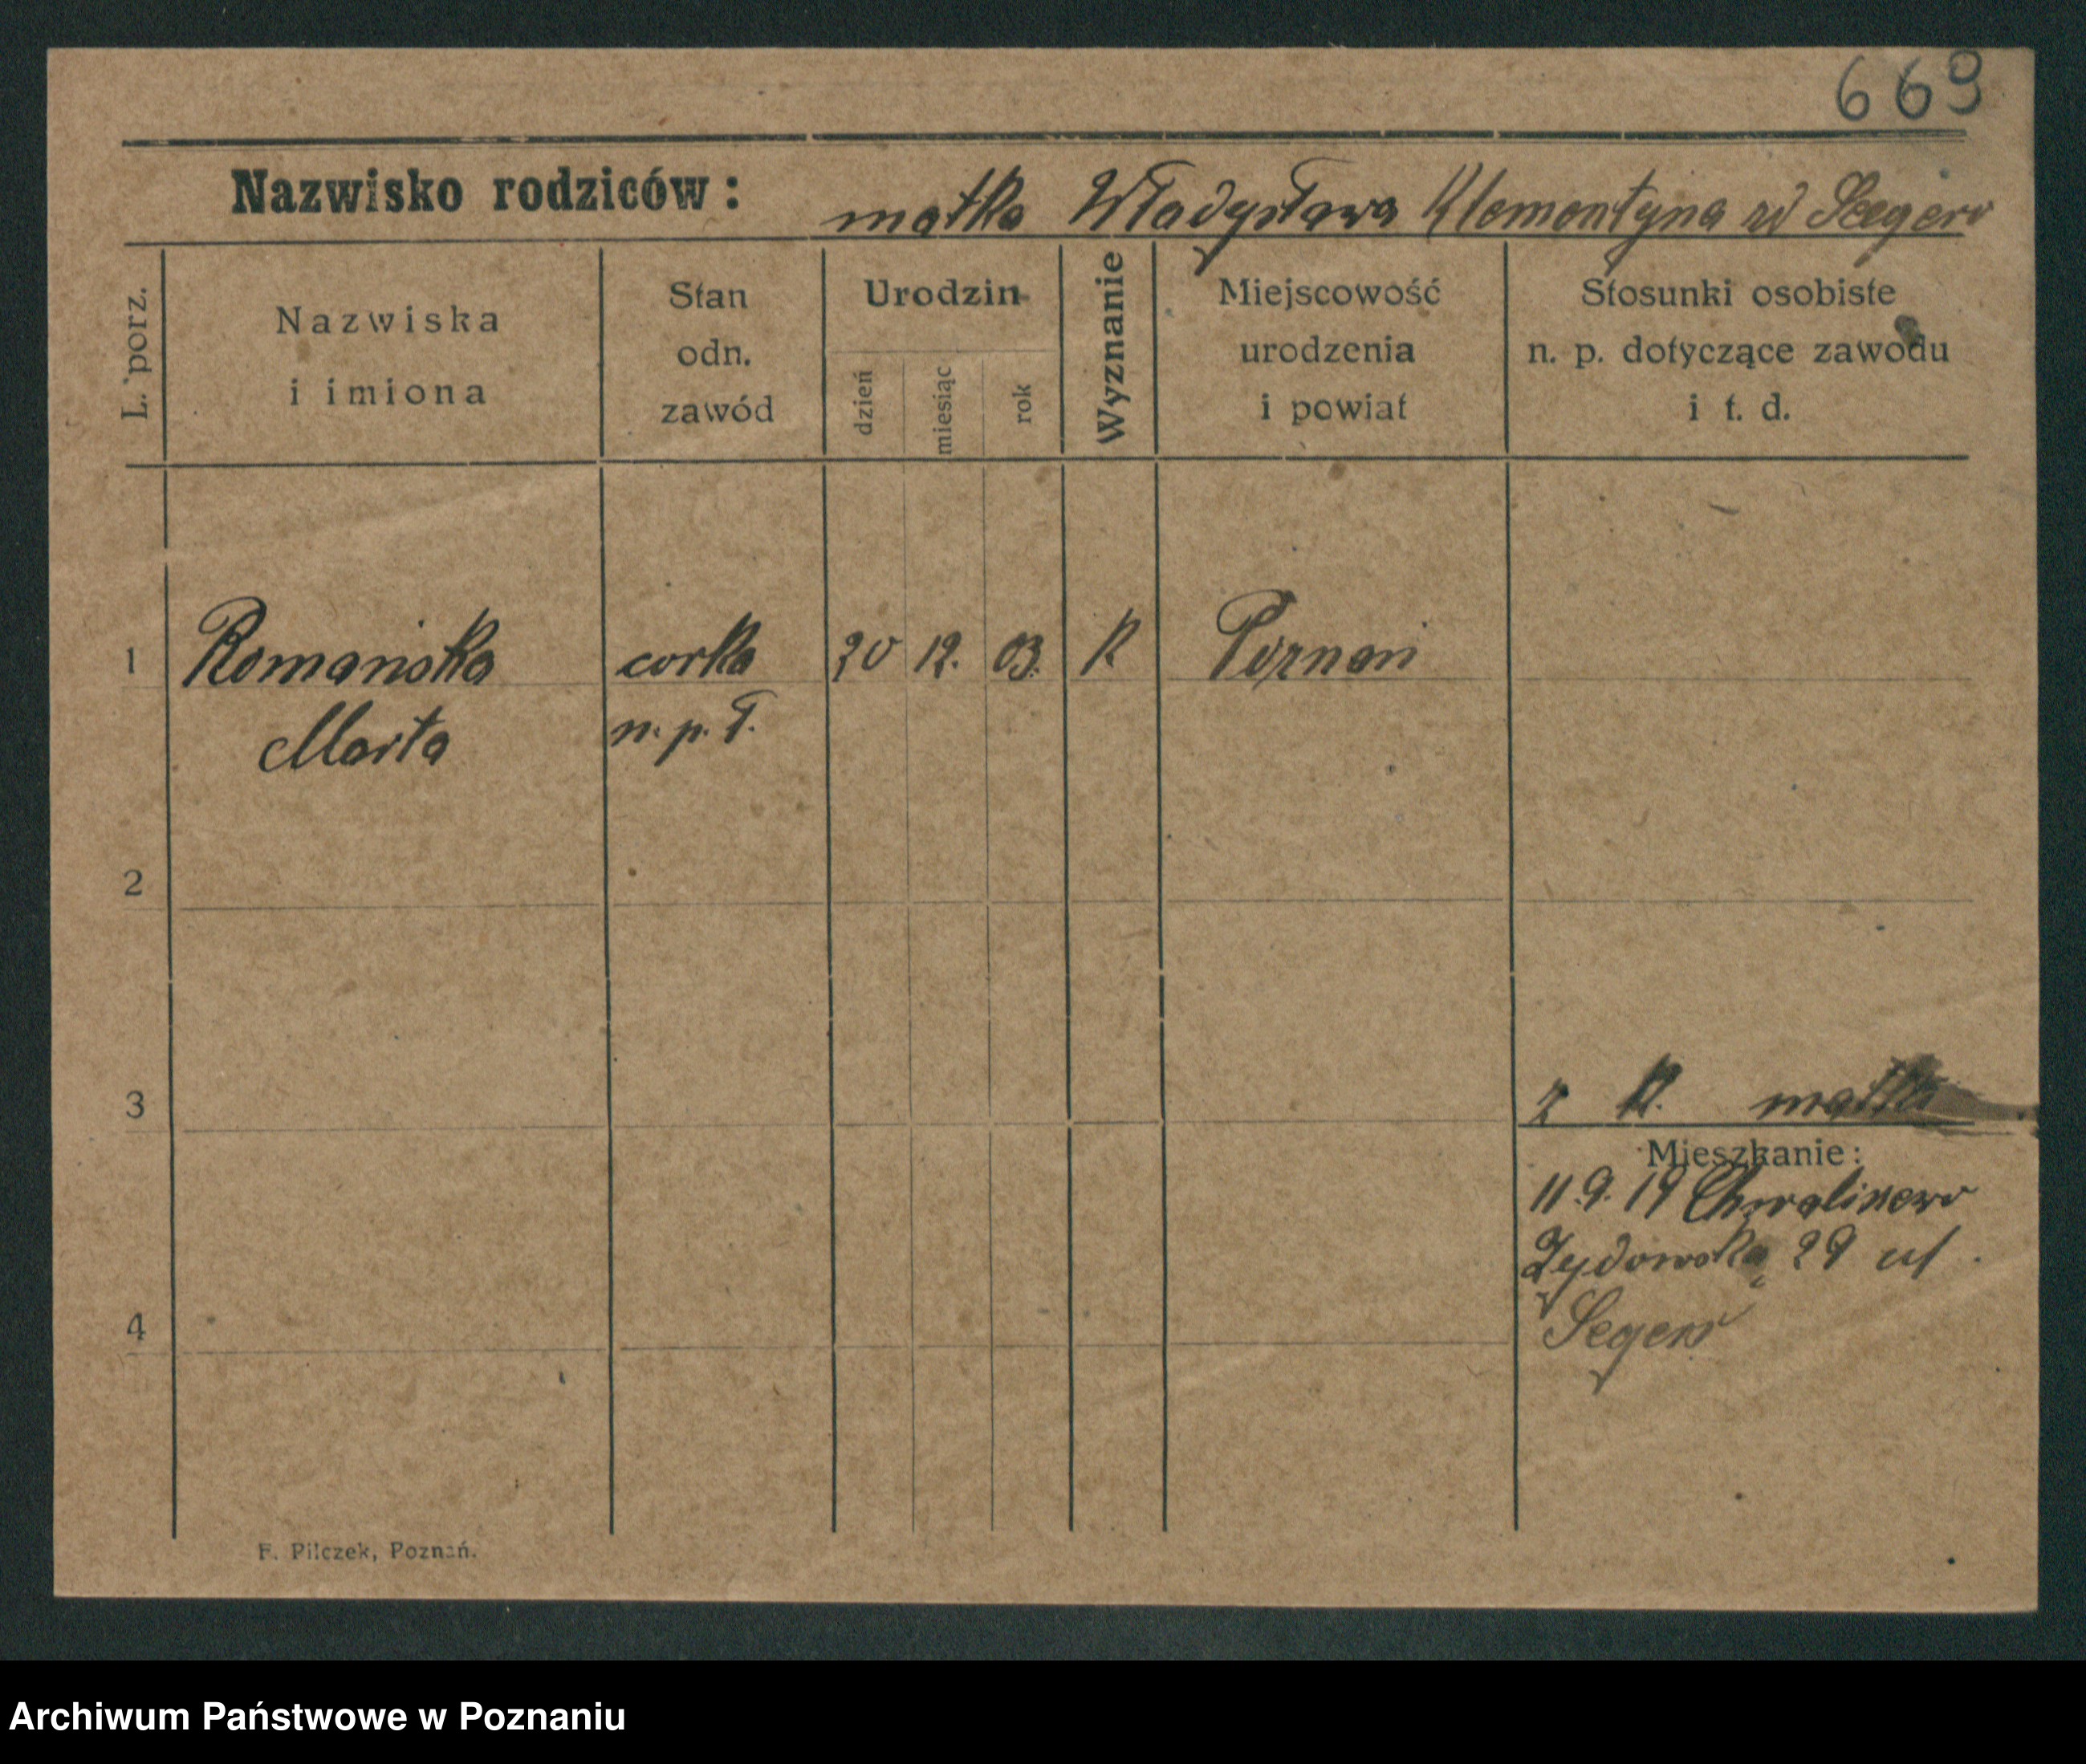 669
Nazwisko rodziców: matka Władysława Klementyna zd Seeger
L. porz.
Nazwiska i imiona
Stan odn. zawód
Urodzin
dzień
miesiąc
rok
Wyznanie
Miejscowość urodzenia i powiat
Stosunki osobiste n. p. dotyczące zawodu i t. d.
1 Romańska corka 20 12. 03. K Poznań
Marta n. p. T.
2
3
z K. matka
Mieszkanie:
11.9.19 Chwaliszewo
Żydowska 29 u/
Seger
4
F. Pilczek, Poznań.
Archiwum Państwowe w Poznaniu